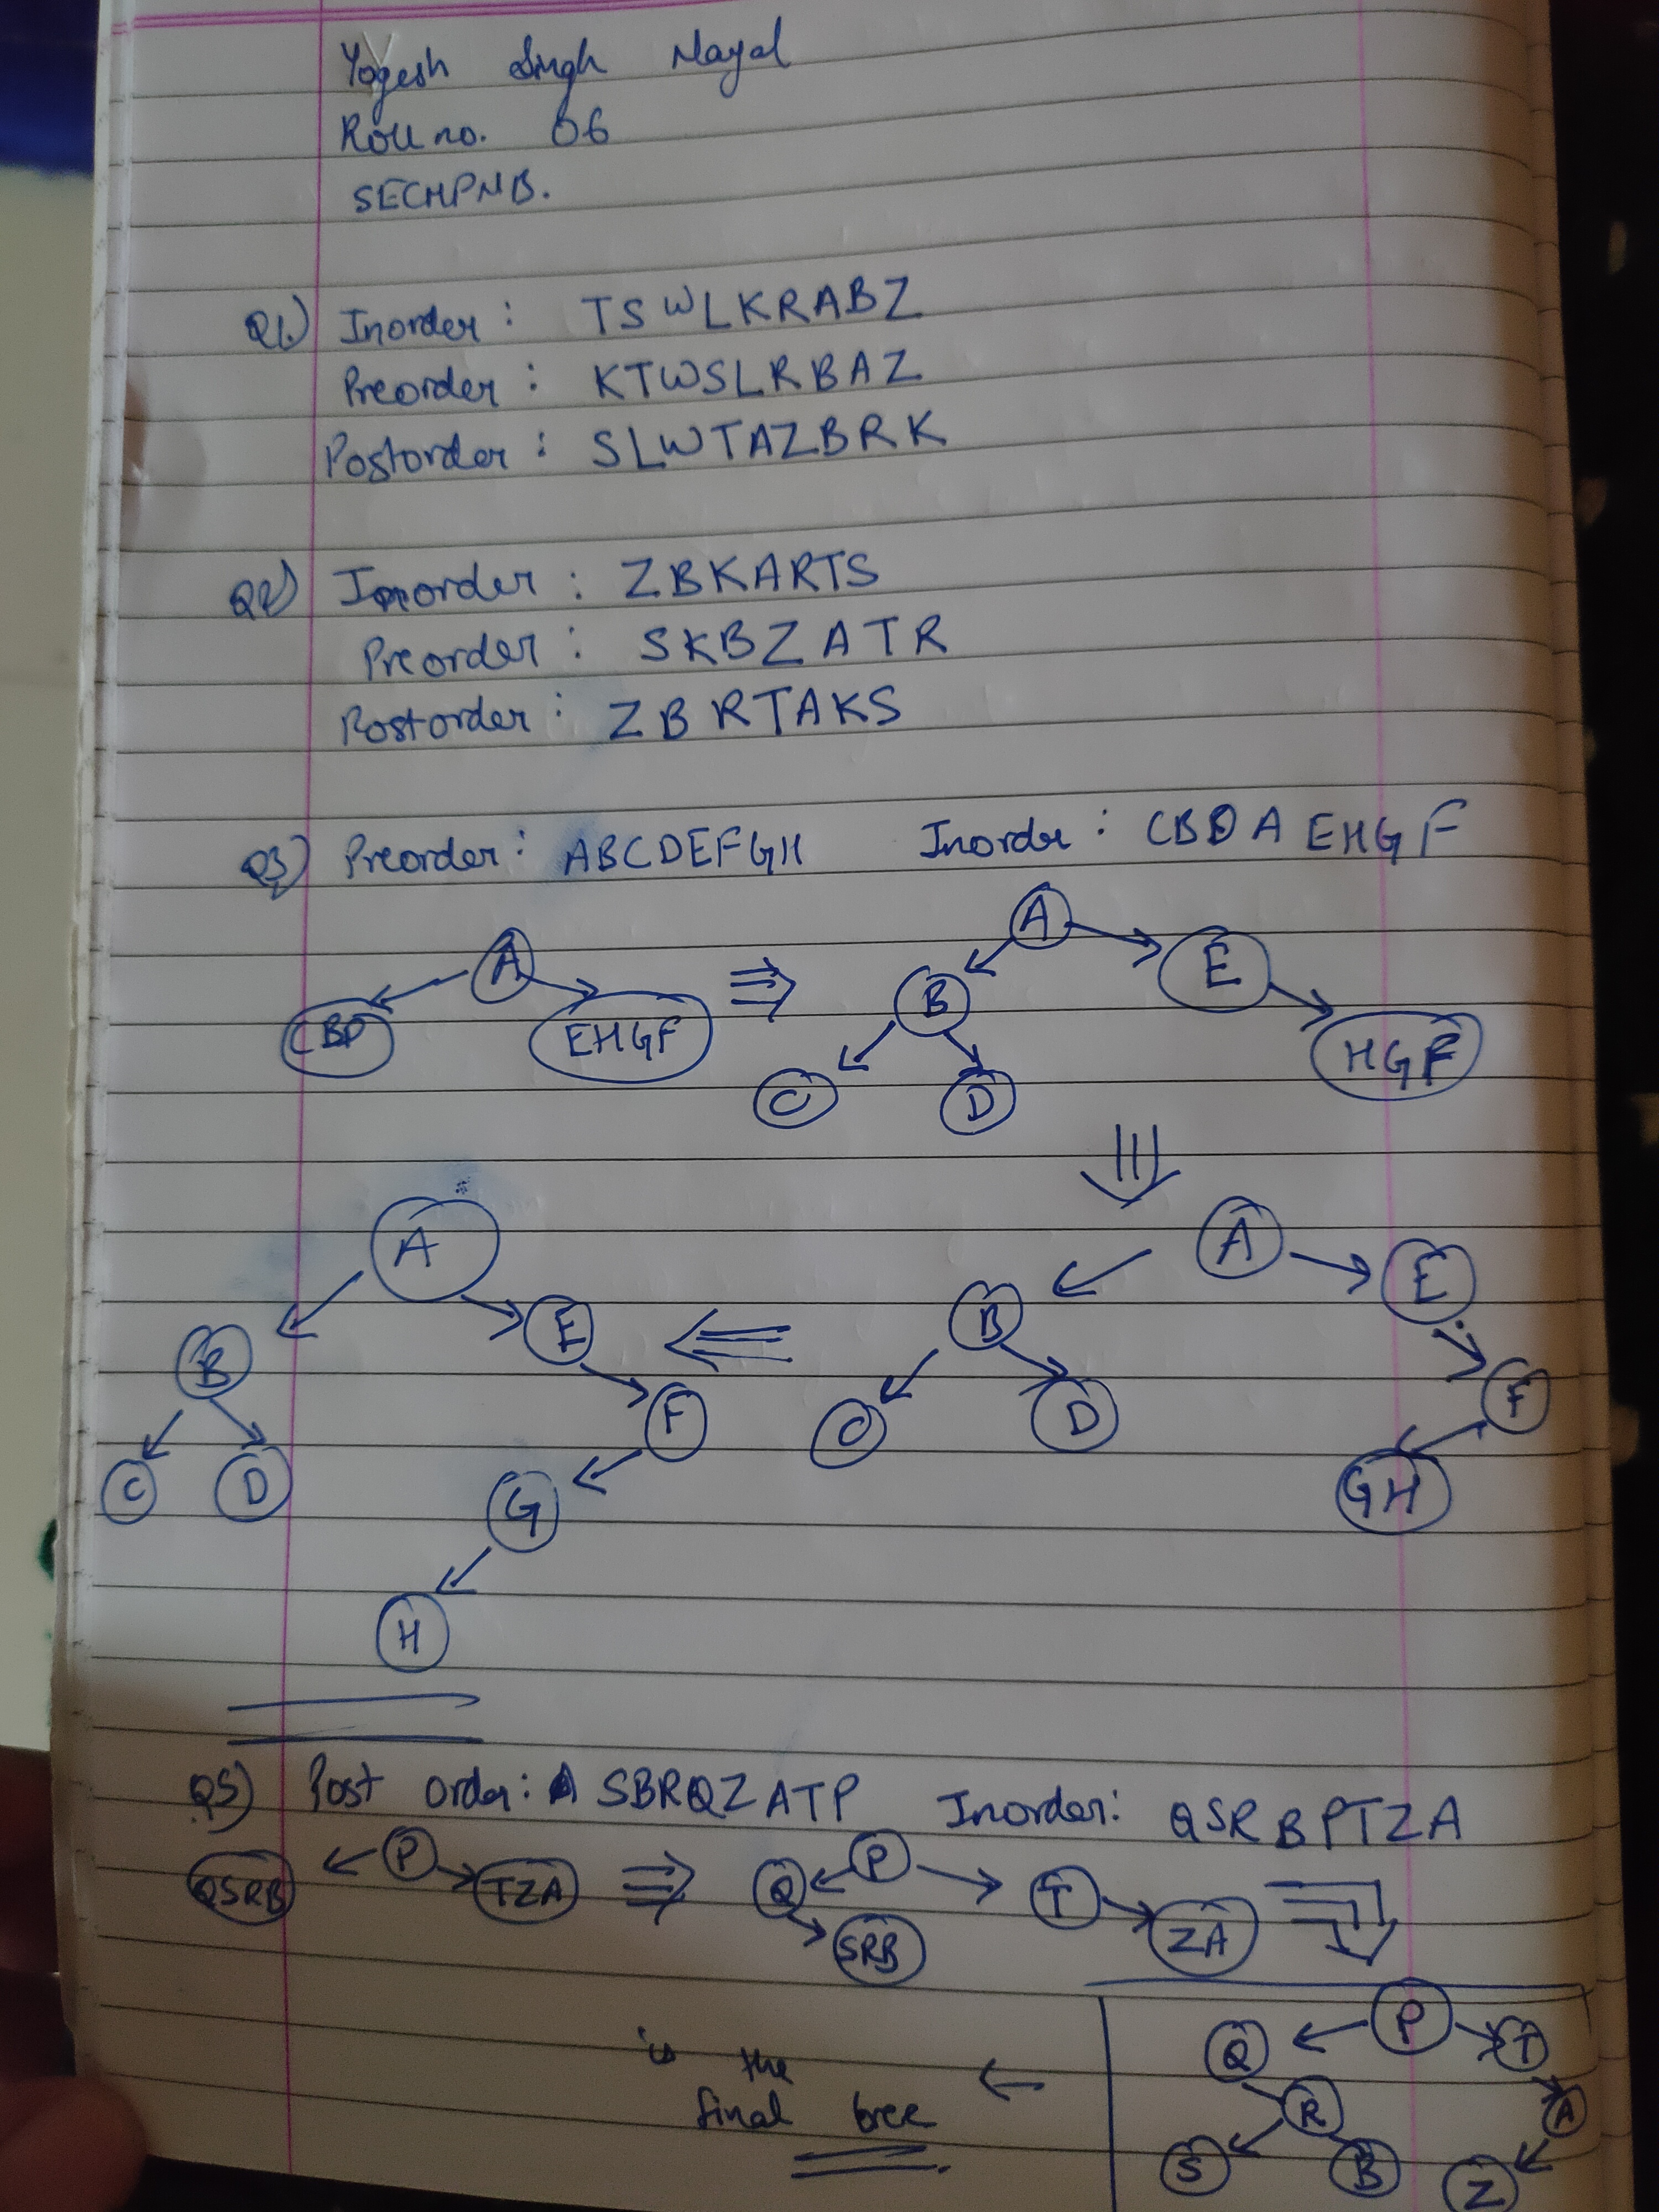 Yogesh Singh Nayal
Roll no. 06
Q1.) Inorder : TSWLKRABZ
Preorder : KTWSLRBAZ
Postorder : SLWTAZBRK
Q2) Inorder : ZBKARTS
Preorder : SKBZATR
Postorder : ZBRTAKS
Q3) Preorder : ABCDEFGH Inorder : CBDA EHGF
A A
CBD EHGF ⇒ B E
C D HGF
A A
B E B E
C D F C D F
G GH
H
Q5) Post order : SBRQZATP Inorder : QSRBPTZA
P P
QSRB TZA ⇒ Q T
SRB ZA
P
Q T
is the ← R A
final tree S B Z